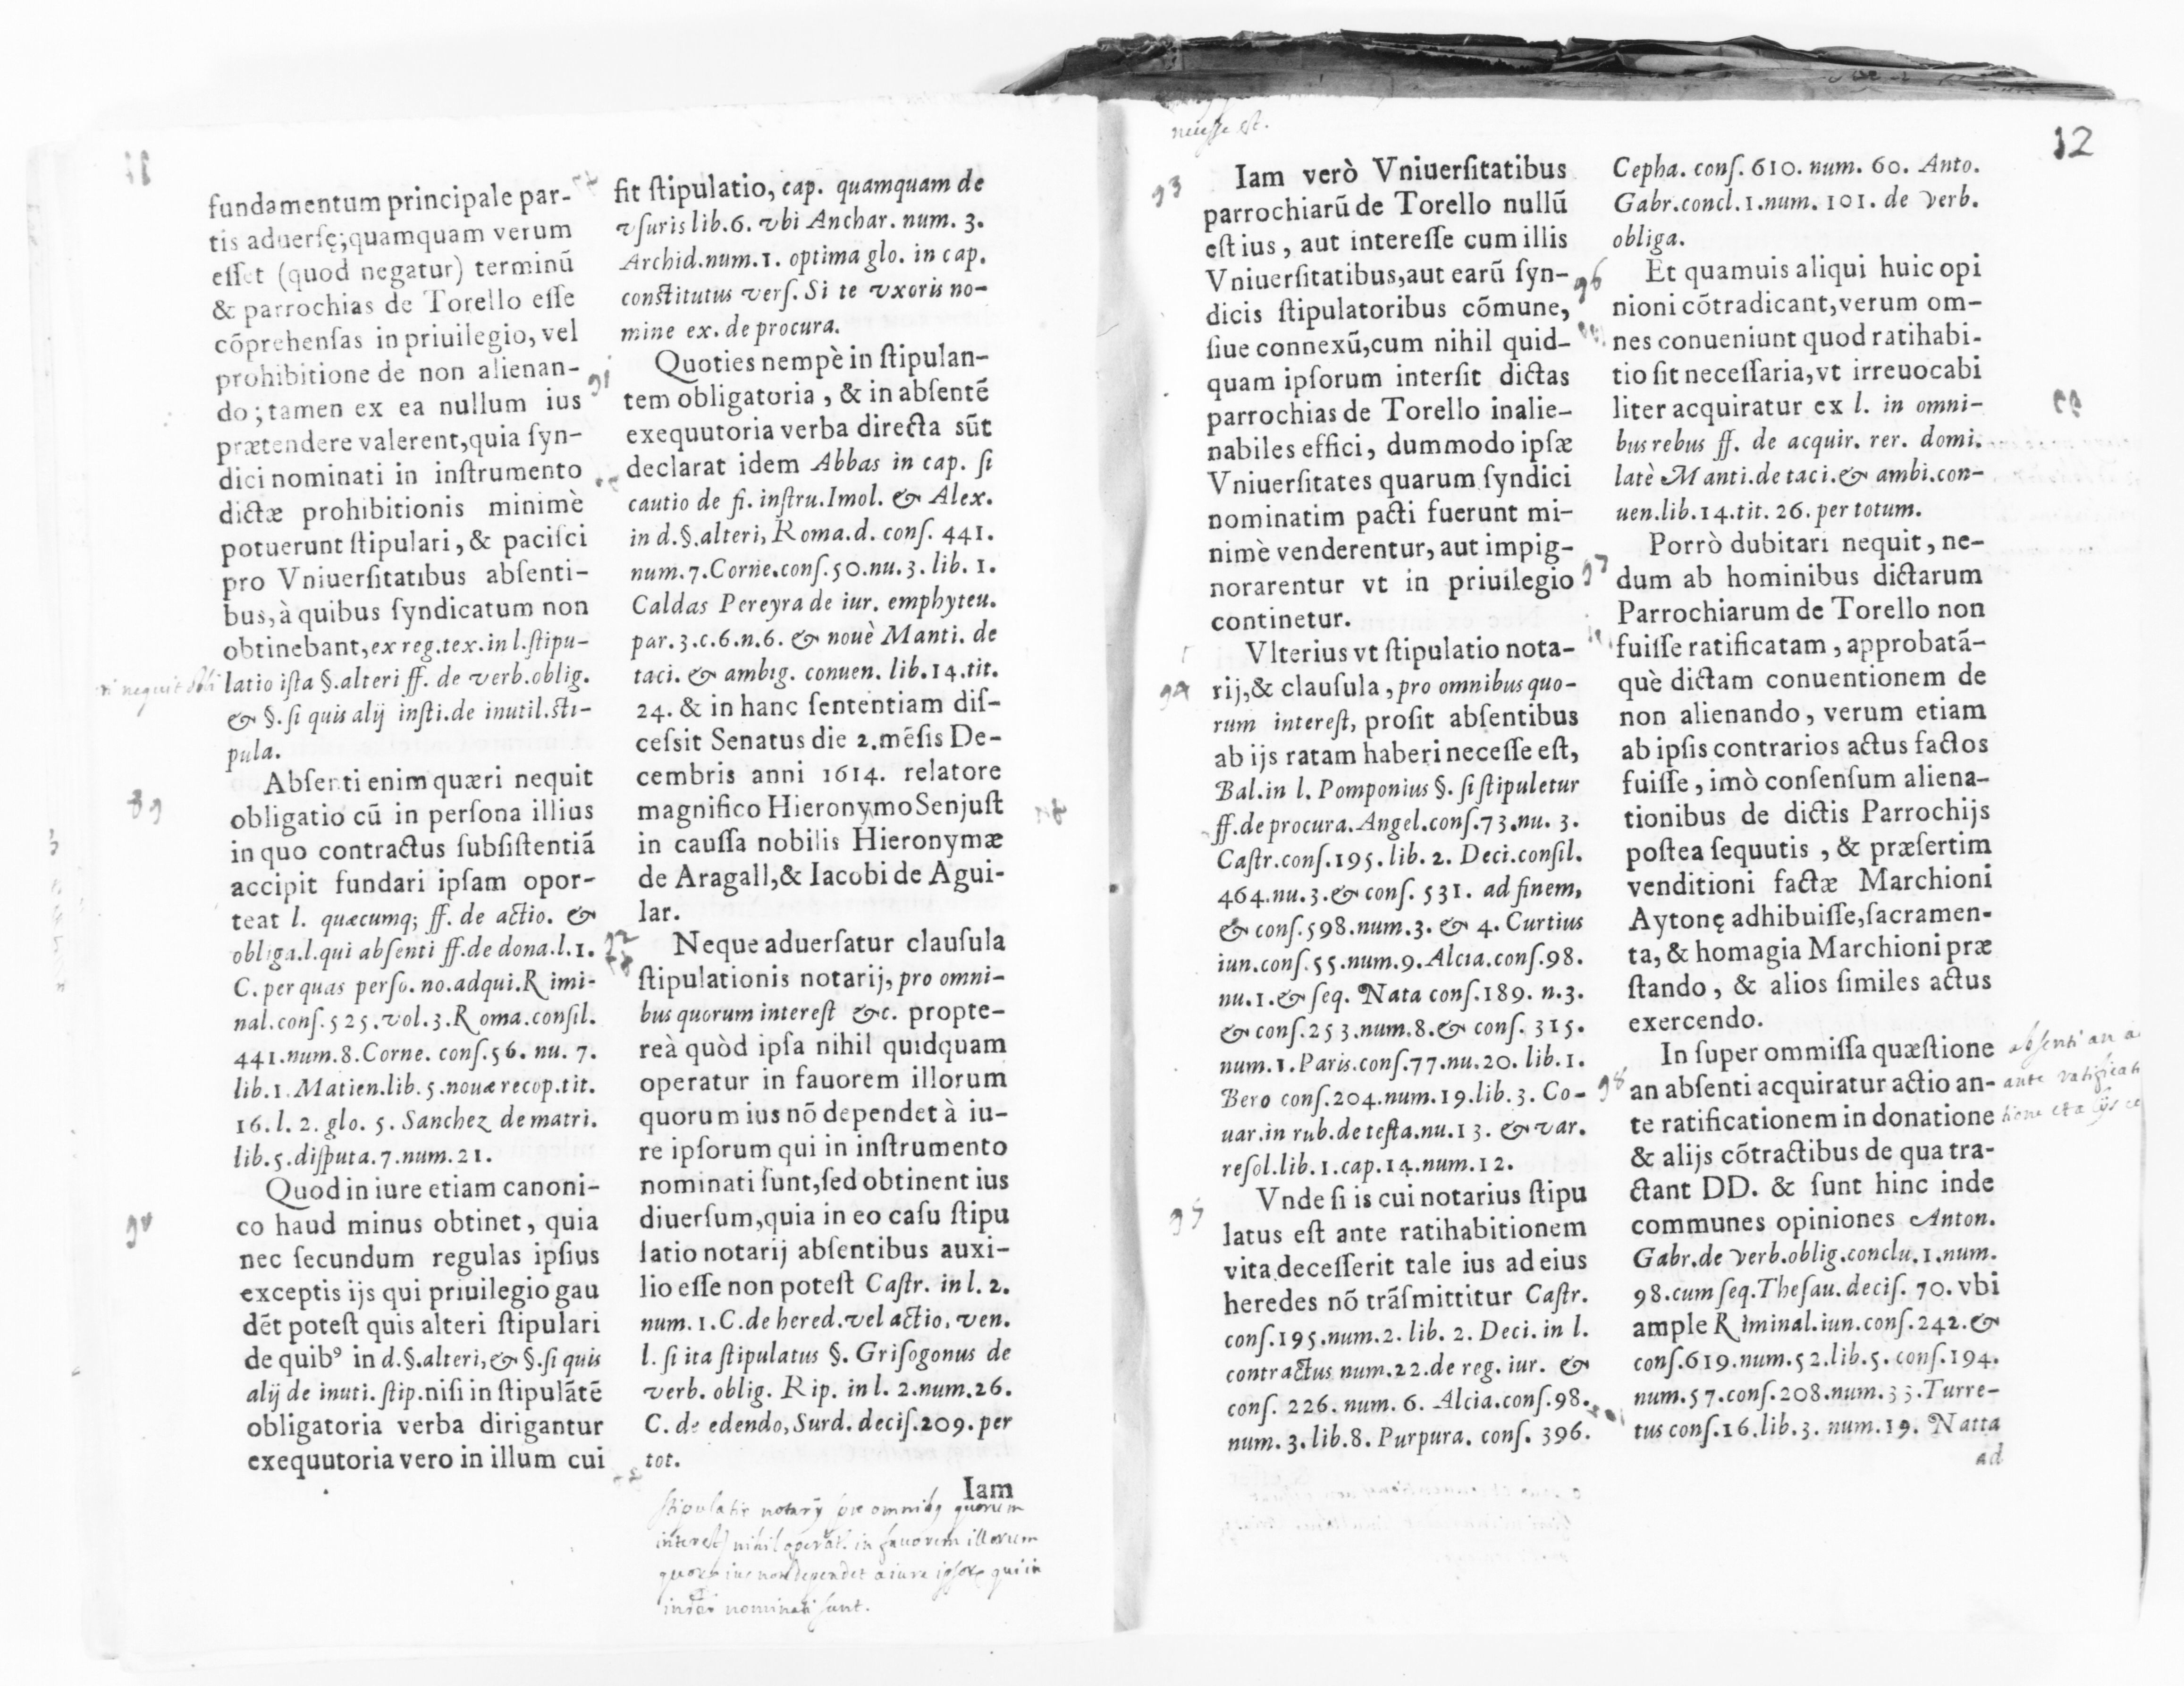 fundamentum principale par-
tis aduersę;quamquam verum
esset (quod negatur) terminũ
& parrochias de Torello esse
cõprehensas in priuilegio, vel
prohibitione de non alienan-
do; tamen ex ea nullum ius
prætendere valerent,quia syn-
dici nominati in instrumento
dictæ prohibitionis minimè
potuerunt stipulari, & pacisci
pro Vniuersitatibus absenti-
bus, à quibus syndicatum non
obtinebant, ex reg.tex.in l.stipu-
latio ista §.alteri ff. de verb.oblig.
& §. si quis alij insti.de inutil.sti-
pula.
89
Absenti enim quæri nequit
obligatio cũ in persona illius
in quo contractus subsistentiã
accipit fundari ipsam opor-
teat l. quæcumq; ff. de actio. &
obliga.l.qui absenti ff.de dona.l.1.
C. per quas perso. no.adqui.Rimi-
nal.cons.525.vol.3.Roma.consil.
441.num.8.Corne. cons.56. nu. 7.
lib.1.Matien.lib.5.nouæ recop.tit.
16. l. 2. glo. 5. Sanchez de matri.
lib.5.disputa.7.num.21.
90
Quod in iure etiam canoni-
co haud minus obtinet, quia
nec secundum regulas ipsius
exceptis ijs qui priuilegio gau
dẽt potest quis alteri stipulari
de quibꝰ in d.§.alteri,& §.si quis
alij de inuti. stip.nisi in stipulãtẽ
obligatoria verba dirigantur
exequutoria vero in illum cui
fit stipulatio, cap. quamquam de
vsuris lib.6. vbi Anchar. num. 3.
Archid.num.1. optima glo. in cap.
constitutus vers. Si te vxoris no-
mine ex. de procura.
91
Quoties nempè in stipulan-
tem obligatoria, & in absentẽ
exequutoria verba directa sũt
declarat idem Abbas in cap. si
cautio de fi. instru.Imol. & Alex.
in d.§.alteri, Roma.d. cons. 441.
num.7.Corne.cons.50.nu.3. lib. 1.
Caldas Pereyra de iur. emphyteu.
par.3.c.6.n.6. & nouè Manti. de
taci. & ambig. conuen. lib.14.tit.
24. & in hanc sententiam dis-
cessit Senatus die 2.mẽsis De-
cembris anni 1614. relatore
magnifico Hieronymo Senjust
in caussa nobilis Hieronymæ
de Aragall,& Iacobi de Agui-
lar.
92
Neque aduersatur clausula
stipulationis notarij, pro omni-
bus quorum interest &c. propte-
reà quòd ipsa nihil quidquam
operatur in fauorem illorum
quorum ius nõ dependet à iu-
re ipsorum qui in instrumento
nominati sunt,sed obtinent ius
diuersum,quia in eo casu stipu
latio notarij absentibus auxi-
lio esse non potest Castr. in l. 2.
num. 1. C.de hered.vel actio. ven.
l. si ita stipulatus §. Grisogonus de
verb. oblig. Rip. in l. 2.num.26.
C. de edendo, Surd. decis.209.per
tot.
Iam
stipulatio notarij pro omnibꝰ quorum
interest nihil operat. in fauorem illorum
quorum ius non dependet a iure ipsorum qui in
nominati sunt.
12
necesse est.
93
Iam verò Vniuersitatibus
parrochiarũ de Torello nullũ
est ius, aut interesse cum illis
Vniuersitatibus,aut earũ syn-
dicis stipulatoribus cõmune,
siue connexũ,cum nihil quid-
quam ipsorum intersit dictas
parrochias de Torello inalie-
nabiles effici, dummodo ipsæ
Vniuersitates quarum syndici
nominatim pacti fuerunt mi-
nimè venderentur, aut impig-
norarentur vt in priuilegio
continetur.
94
Vlterius vt stipulatio nota-
rij,& clausula, pro omnibus quo-
rum interest, prosit absentibus
ab ijs ratam haberi necesse est,
Bal.in l. Pomponius §. si stipuletur
ff.de procura.Angel.cons.73.nu. 3.
Castr.cons.195.lib. 2. Deci.consil.
464.nu.3.& cons. 531. ad finem,
& cons.598.num.3. & 4. Curtius
iun.cons.55.num.9.Alcia.cons.98.
nu.1.& seq. Nata cons.189. n.3.
& cons.253.num.8.& cons. 315.
num.1.Paris.cons.77.nu.20. lib.1.
Bero cons.204.num.19.lib.3. Co-
uar.in rub.de testa.nu.13. & var.
resol.lib.1.cap.14.num.12.
95
Vnde si is cui notarius stipu
latus est ante ratihabitionem
vita decesserit tale ius ad eius
heredes nõ trãsmittitur Castr.
cons.195.num.2. lib. 2. Deci. in l.
contractus num.22.de reg. iur. &
cons. 226. num. 6. Alcia.cons.98.
num. 3.lib.8. Purpura. cons. 396.
Cepha. cons. 610. num. 60. Anto.
Gabr.concl.1.num.101. de verb.
obliga.
96
Et quamuis aliqui huic opi
nioni cõtradicant,verum om-
nes conueniunt quod ratihabi-
tio sit necessaria,vt irreuocabi
liter acquiratur ex l. in omni-
bus rebus ff. de acquir. rer. domi.
latè Manti.de taci.& ambi.con-
uen.lib.14.tit. 26. per totum.
97
Porrò dubitari nequit, ne-
dum ab hominibus dictarum
Parrochiarum de Torello non
fuisse ratificatam, approbatã-
què dictam conuentionem de
non alienando, verum etiam
ab ipsis contrarios actus factos
fuisse, imò consensum aliena-
tionibus de dictis Parrochijs
postea sequutis, & præsertim
venditioni factæ Marchioni
Aytonę adhibuisse,sacramen-
ta, & homagia Marchioni præ
stando, & alios similes actus
exercendo.
98
In super ommissa quæstione
an absenti acquiratur actio an-
te ratificationem in donatione
& alijs cõtractibus de qua tra-
ctant DD. & sunt hinc inde
communes opiniones Anton.
Gabr.de verb.oblig.conclu.1.num.
98.cum seq.Thesau. decis. 70. vbi
ample Riminal.iun.cons.242.&
cons.619.num.52.lib.5. cons.194.
num.57.cons.208.num.33.Turre-
tus cons.16.lib.3. num.19. Natta
ad
absenti an
ante ratificati